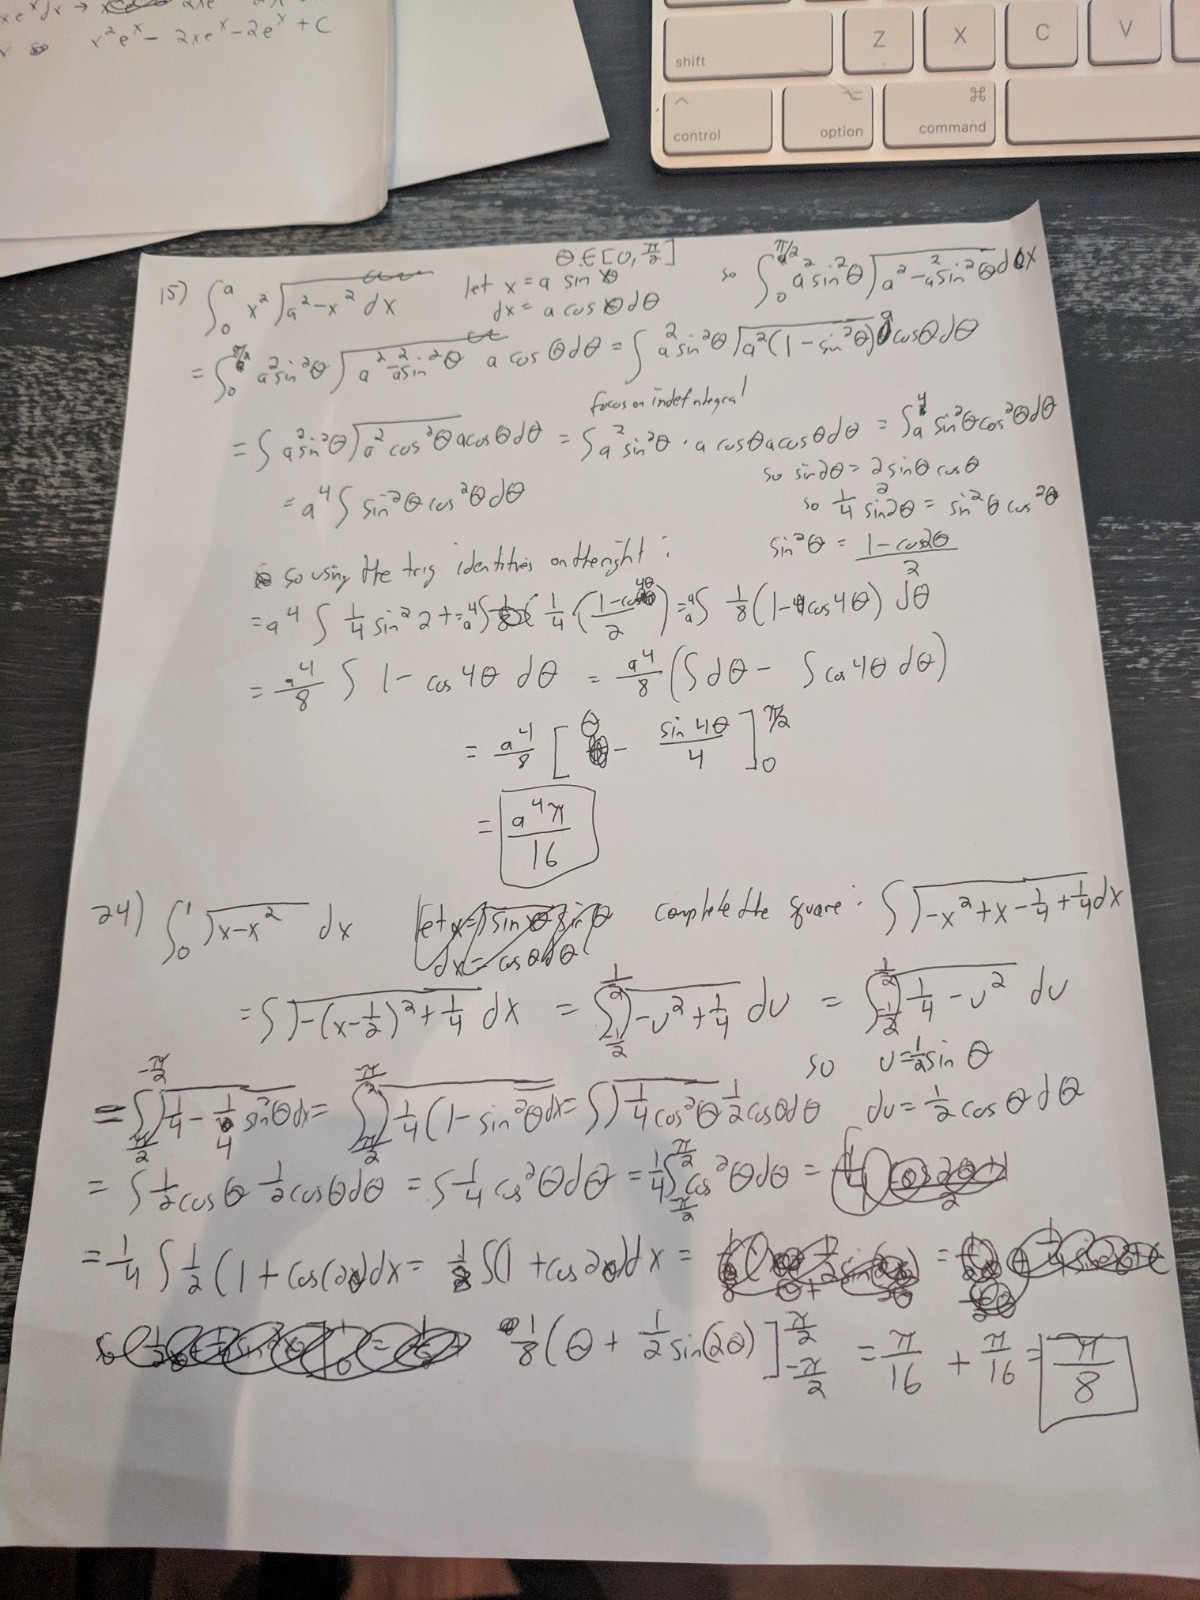 xeˣdx →
x²eˣ - 2xeˣ - 2eˣ + C
Z X C V
shift
^ ⌥ ⌘
control option command
θ ∈ [0, π/2]
15) ∫₀ᵃ x² √(a² - x²) dx let x = a sin θ so ∫₀^(π/2) a² sin²θ √(a² - a² sin²θ) dx
dx = a cos θ dθ
= ∫₀^(π/2) a² sin²θ √(a² - a² sin²θ) a cos θ dθ = ∫ a² sin²θ √(a²(1 - sin²θ)) a cosθ dθ
focus on indef integral
= ∫ a² sin²θ √(a² cos²θ) a cosθ dθ = ∫ a² sin²θ · a cosθ a cosθ dθ = ∫ a⁴ sin²θ cos²θ dθ
so sin2θ = 2 sinθ cosθ
= a⁴ ∫ sin²θ cos²θ dθ
so 1/4 sin²2θ = sin²θ cos²θ
sin²θ = (1 - cos2θ)/2
so using the trig identities on the right :
= a⁴ ∫ 1/4 sin² 2 t = a⁴ ∫ 1/4 · ((1 - cos 4θ)/2) = a⁴ ∫ 1/8 (1 - cos 4θ) dθ
= a⁴/8 ∫ 1 - cos 4θ dθ = a⁴/8 (∫ dθ - ∫ cos 4θ dθ)
= a⁴/8 [θ - sin 4θ/4]₀^(π/2)
= a⁴π/16
24) ∫₀¹ √(x - x²) dx let x = sin θ complete the square : ∫ √(-x² + x - 1/4 + 1/4) dx
dx = cos θ dθ
= ∫ √(-(x - 1/2)² + 1/4) dx = ∫_(-1/2)^(1/2) √(-u² + 1/4) du = ∫_(-1/2)^(1/2) √(1/4 - u²) du
so u = 1/2 sin θ
= ∫_(π/2)^(-π/2) √(1/4 - 1/4 sin²θ) dx = ∫_(π/2)^(π/2) √(1/4 (1 - sin²θ) dx = ∫ √(1/4 cos²θ) 1/2 cosθ dθ du = 1/2 cos θ dθ
= ∫ 1/2 cos θ 1/2 cosθ dθ = ∫ 1/4 cos²θ dθ = 1/4 ∫_(-π/2)^(π/2) cos²θ dθ =
= 1/4 ∫ 1/2 (1 + cos(2θ) dx = 1/8 ∫(1 + cos 2θ) dx = =
1/8 (θ + 1/2 sin(2θ)]_(-π/2)^(π/2) = π/16 + π/16 = π/8